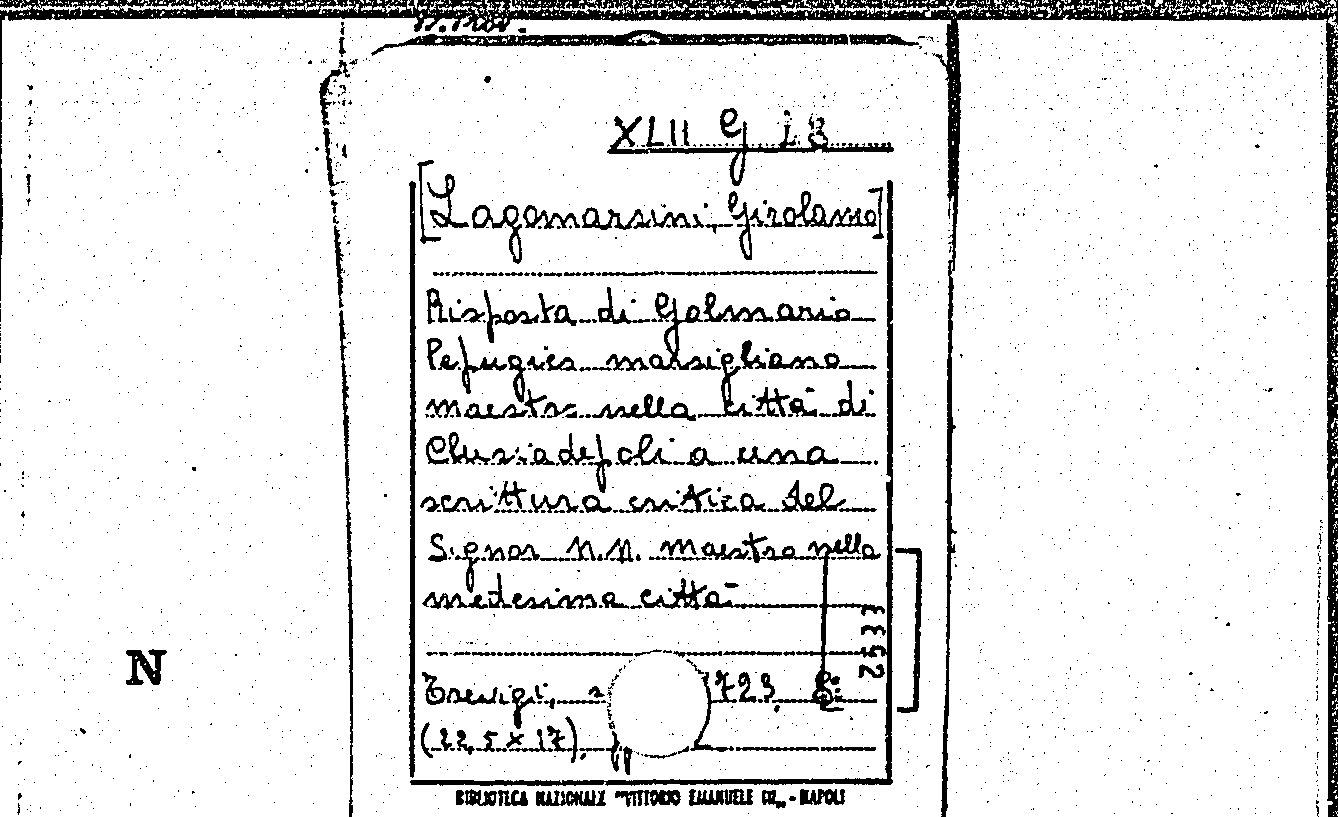 XLII G 18
[Lagomarsini, Girolamo]
Risposta di Golmario
Pefugies marsigliano
maestro nella città di
Clusiadefoli a una
scrittura critica del
Signor N.N. maestro nella
medesima città
2533
N
Trevigi, 1723.
(22,5 x 17).
BIBLIOTECA NAZIONALE "VITTORIO EMANUELE III" - NAPOLI